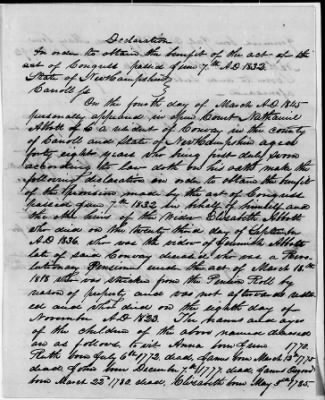 Declaration
In order to obtain the benefit of the act of the
act of Congress passed June 7th A.D 1832.
State of New Hampshire }
Carroll ss }
On the fourth day of March A.D 1845
personally appeared in open Court Nathaniel
Abbott of C a resident of Conway in the county
of Carroll and State of New Hampshire aged
forty eight years who being first duly sworn
according to law doth on his oath make the
following declaration in order to obtain the benefit
of the provision made by the act of Congress
passed June 7th 1832, in behalf of himself and
the other heirs of the Widow Elizabeth Abbott
who died on the twenty third day of September
A.D 1836, who was the widow of Jeremiah Abbott
late of said Conway deceased who was a Revo-
lutionary Pensioner under the act of March 18th
1818 who was stricken from the Pension Roll by
reason of property and was not afterwards restor-
ed and who died on the eighth day of
November A.D 1823. The names and ages
of the children of the above named deceased
are as follows to wit Anna born June 1770.
Ruth born July 6th 1772, dead, James born March 13th 1775
dead, John born December 7th 1777, dead, James
born March 22d 1780, dead, Elizabeth born May 5th 1785